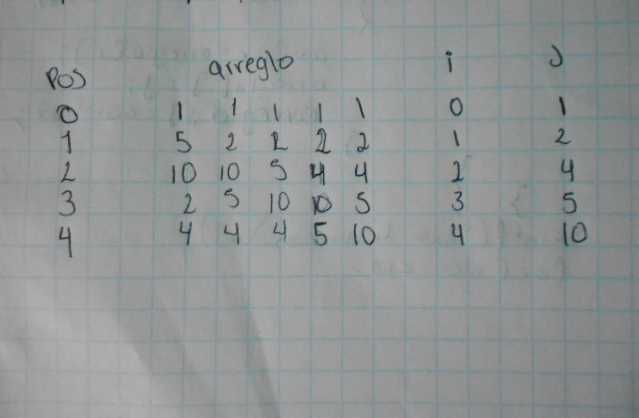 Pos arreglo i J
0 1 1 1 1 1 0 1
1 5 2 2 2 2 1 2
2 10 10 5 4 4 2 4
3 2 5 10 10 5 3 5
4 4 4 4 5 10 4 10